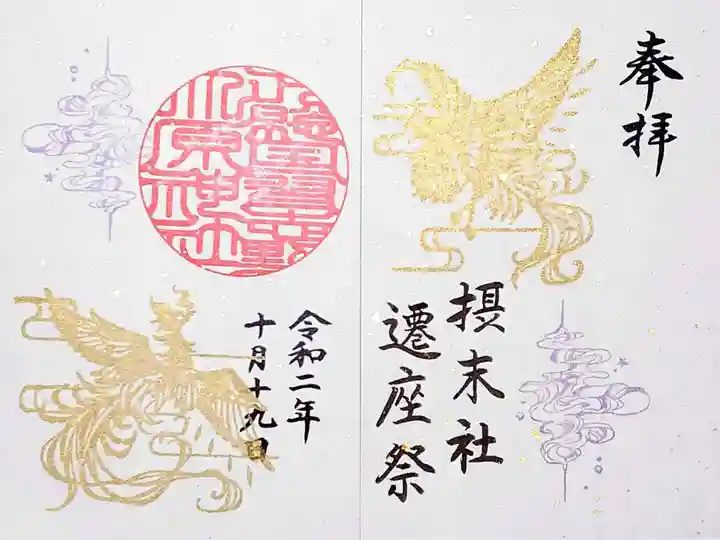 奉拝
摂末社
遷座祭
令和二年
十月十九日
川原神社